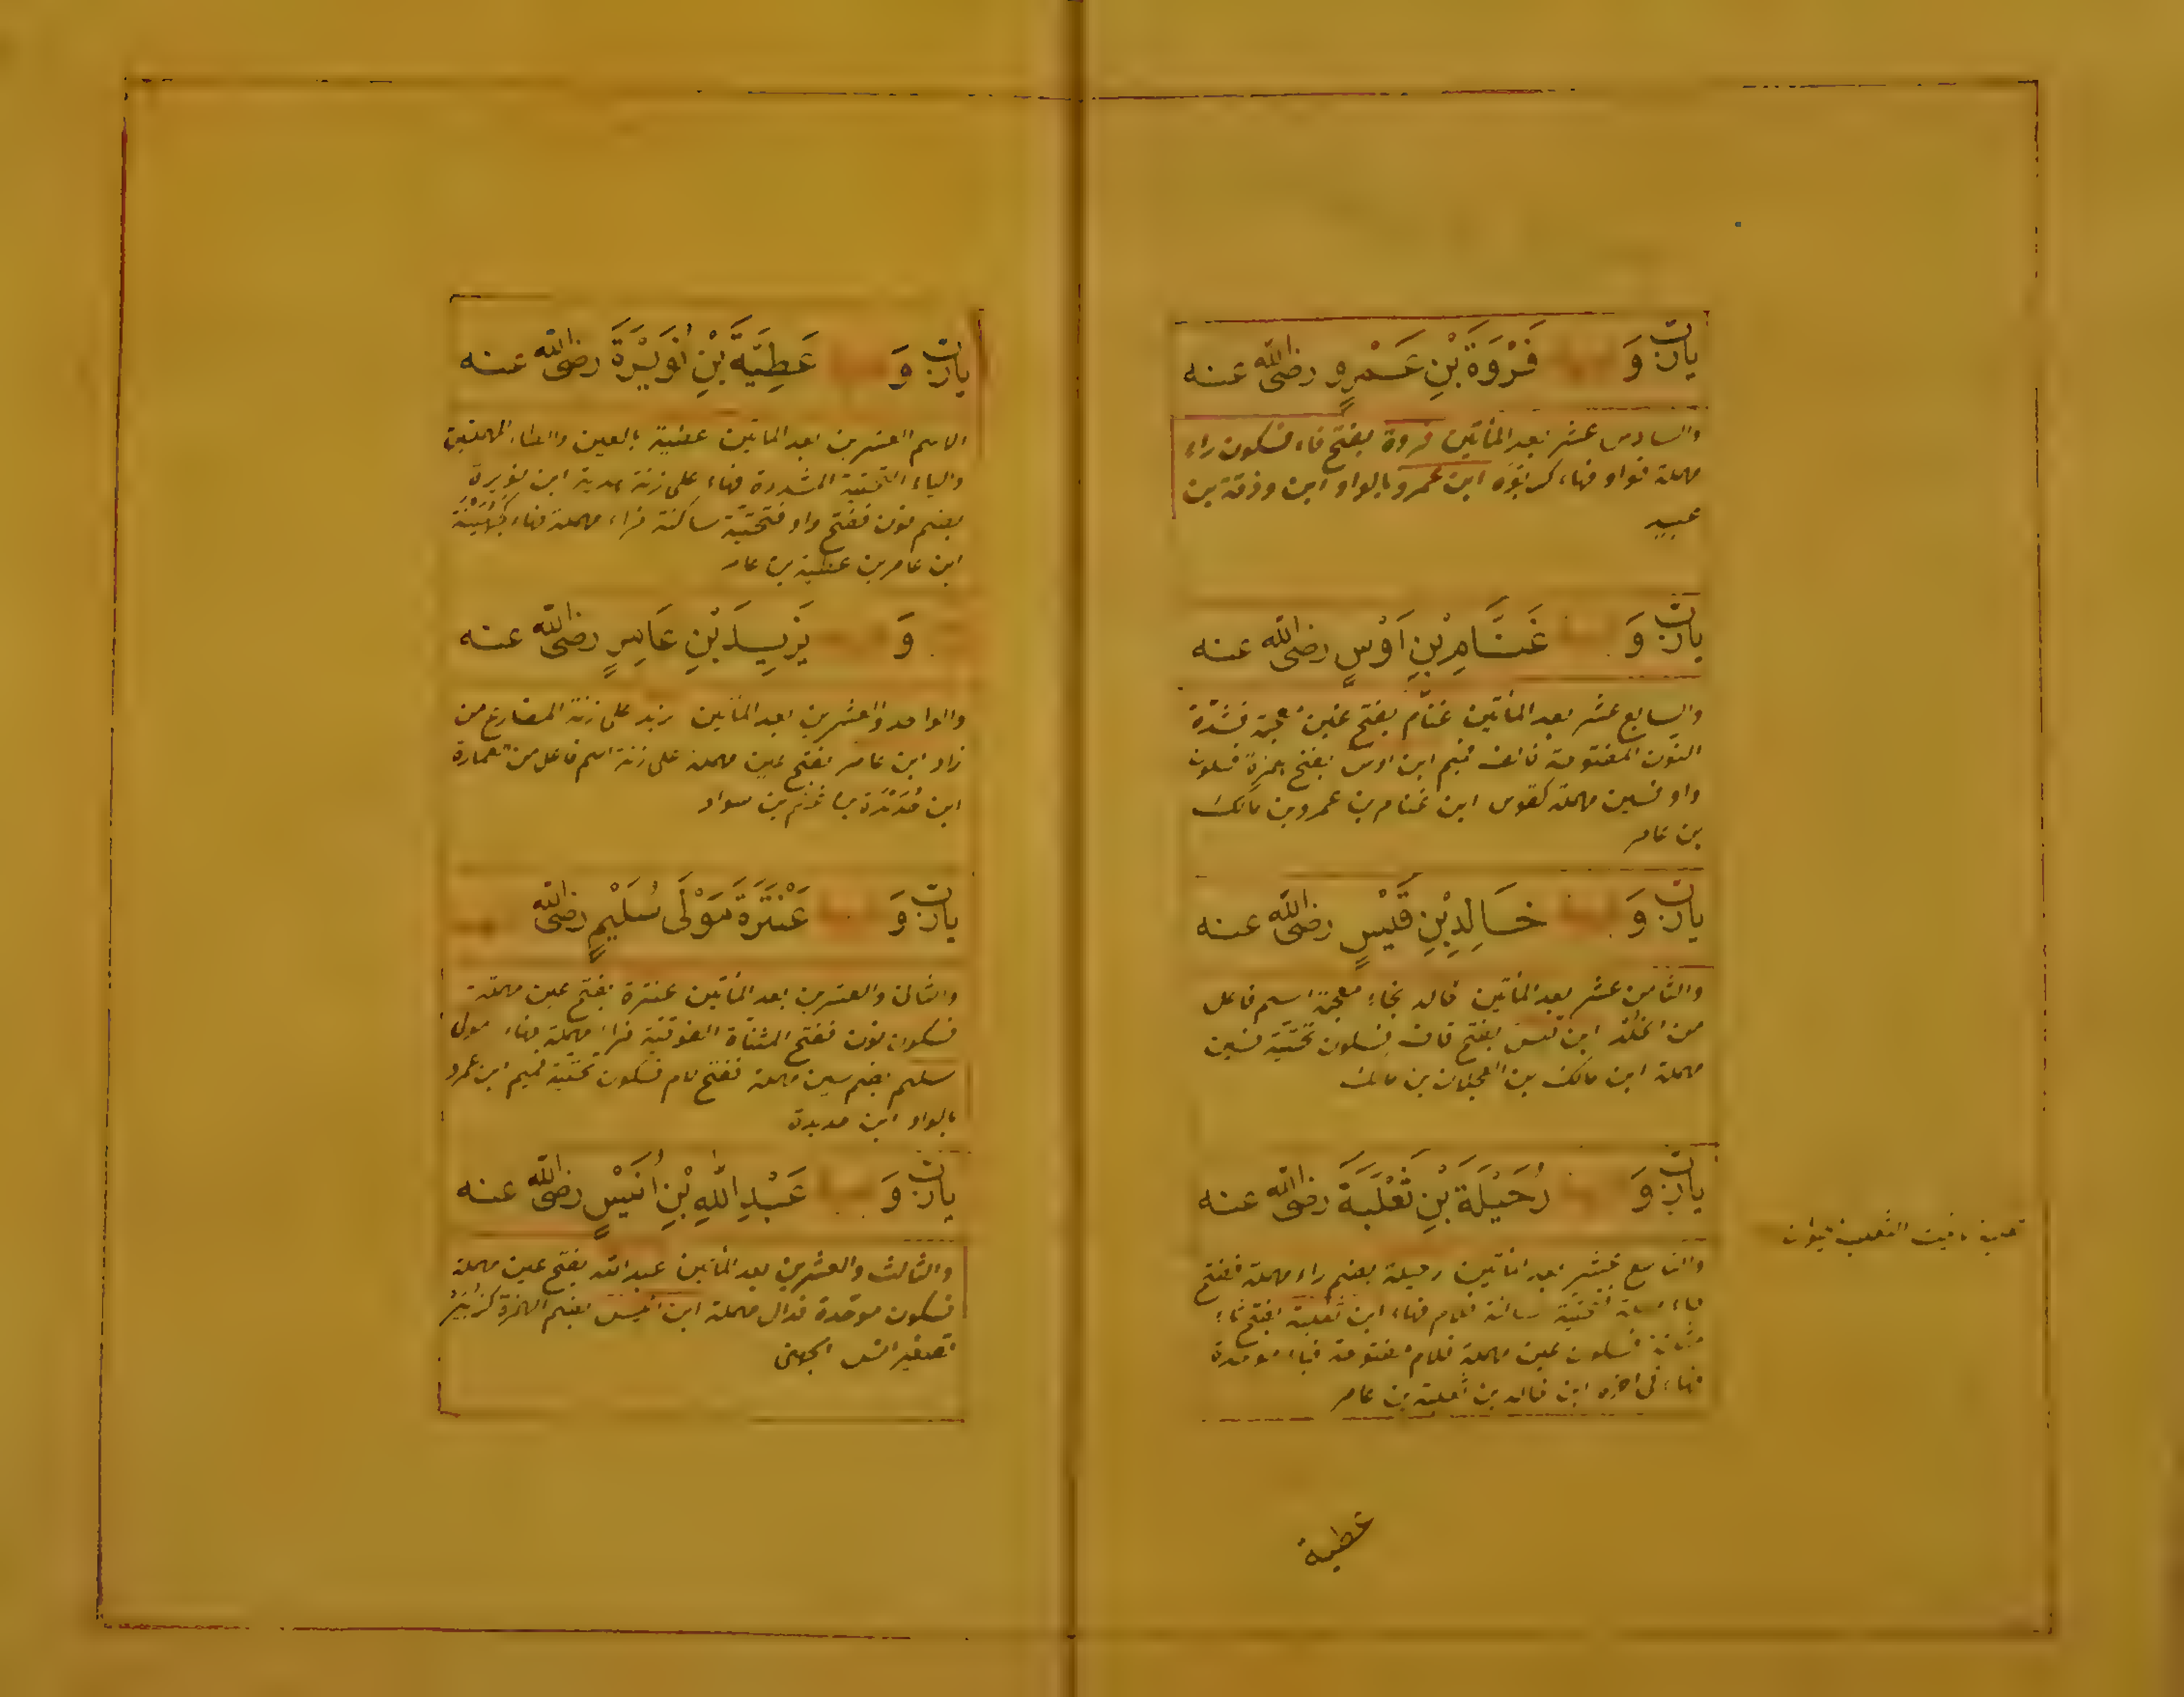 يارب وَ فَرْوَةَ بْنِ عَمْرٍو رضى الله عنه
والسادس عشر بعد المأتين فروة بفتح فاء فسكون راء
مهملة فواو فهاء كربوة ابن عمرو بالواو ابن وذقة بن
عبيد
يارب وَ غَنَّامِ بْنِ اَوْسٍ رضى الله عنه
والسابع عشر بعد المأتين غنام بفتح غين معجمة فشدّة
النون المفتوحة فالف فميم ابن اوس بفتح همزة فسكون
واو فسين مهملة كقوس ابن غنام بن عمرو بن مالك
بن عامر
يارب وَ خَالِدِ بْنِ قَيْسٍ رضى الله عنه
والثامن عشر بعد المأتين خالد بخاء معجمة اسم فاعل
من الخلد ابن قيس بفتح قاف فسكون تحتيّة فسين
مهملة ابن مالك بن العجلان بن مالك
يارب وَ رُحَيْلَةَ بْنِ ثَعْلَبَةَ رضى الله عنه
والتاسع عشر بعد المأتين رحيلة بضم راء مهملة ففتح
حاء فلام فهاء ابن ثعلبة بفتح ثاء
فسكون عين مهملة فلام مفتوحة فباء موحدة
فهاء فى اخره ابن خالد بن ثعلبة بن عامر
عطية
يارب وَ عَطِيَّةَ بْنِ نُوَيْرَةَ رضى الله عنه
الاسم العشرين بعد المأتين عطية بالعين والطاء المهملتين
والياء التحتية المشددة فهاء على زنة هدية ابن نويرة
بضم نون ففتح واو فتحتيّة ساكنة فراء مهملة فهاء كجُهَيْنَة
ابن عامر بن عطية بن عامر
وَ يَزِيدَ بْنِ عَامِرٍ رضى الله عنه
والواحد والعشرين بعد المأتين يزيد على زنة المضارع من
زاد ابن عامر بفتح عين مهملة على زنة اسم فاعل من العمارة
ابن حديدة بن غنم بن سواد
يارب وَ عَنْتَرَةَ مَوْلَى سُلَيْمٍ رضى الله
والثانى والعشرين بعد المأتين عنترة بفتح عين مهملة
فسكون نون ففتح المثناة الفوقية فراء مهملة فهاء مولى
سليم بضم سين مهملة ففتح لام فسكون تحتية فميم ابن عمرو
بالواو ابن حديدة
يارب وَ عَبْدِ اللّٰهِ بْنِ اُنَيْسٍ رضى الله عنه
والثالث والعشرين بعد المأتين عبد الله بفتح عين مهملة
فسكون موحّدة فدال مهملة ابن انيس بضم الهمزة كزبير
تصغير انس الجهنى